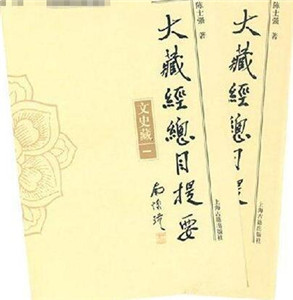 陈士强 著
大藏經總目提要
文史藏
一
南懷瑾
上海古籍出版社
陈士强 著
大藏經總目提
上海古籍出版社